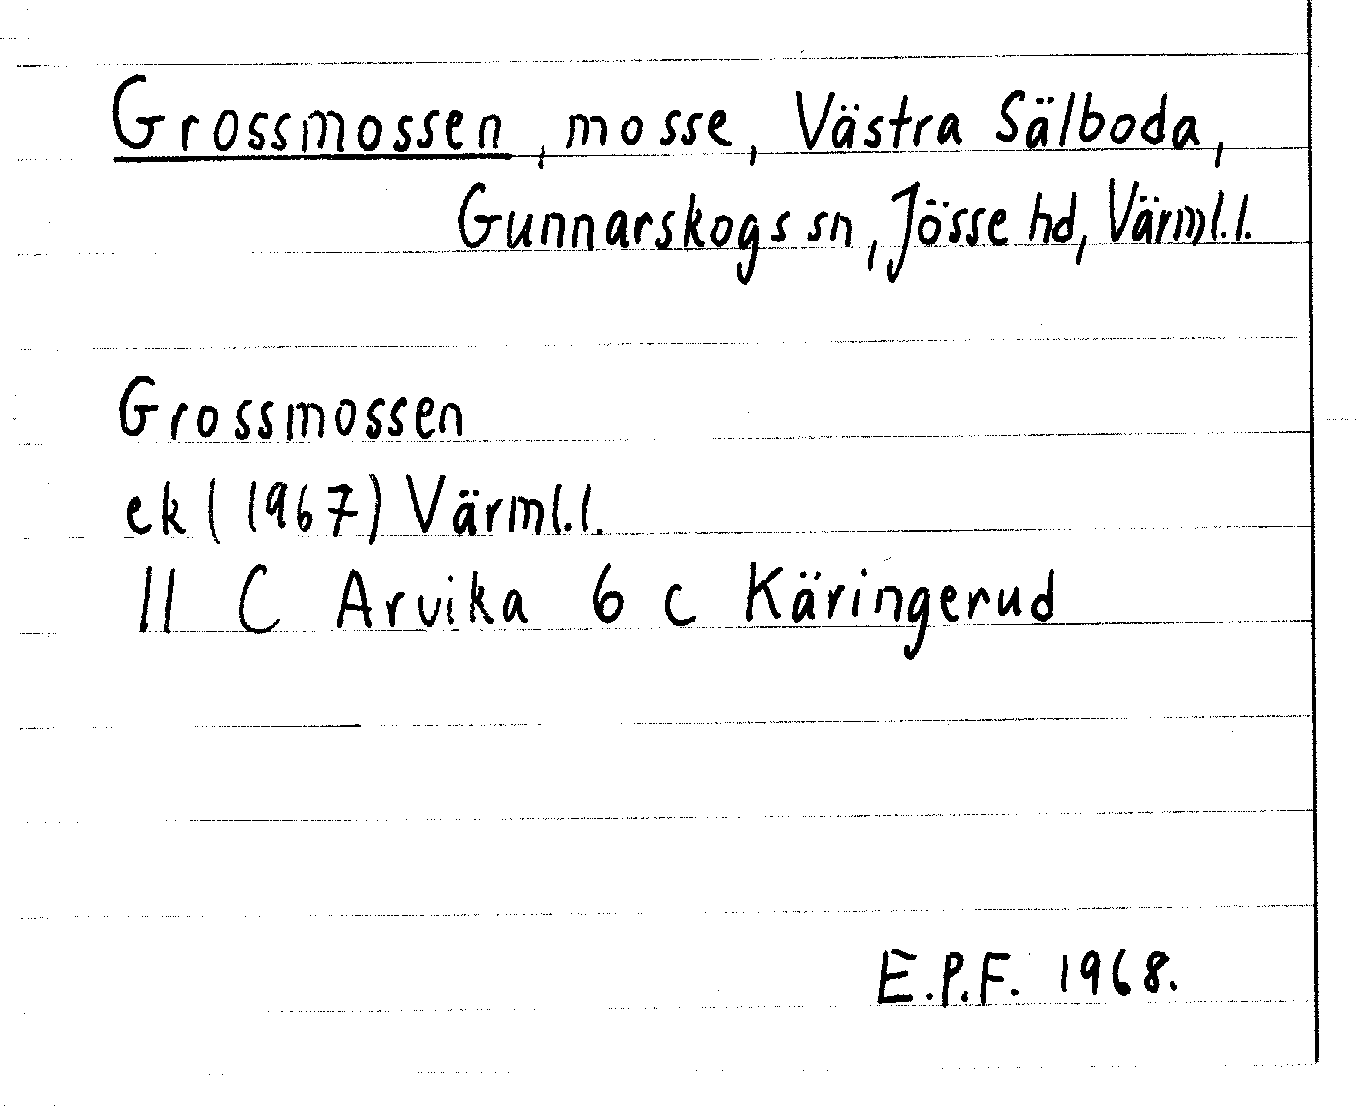 Grossmossen, mosse, Västra Sälboda,
Gunnarskogs sn, Jösse hd, Värml.l.
Grossmossen
ek (1967) Värml.l.
11 C Arvika 6 c Käringerud
E.P.F. 1968.